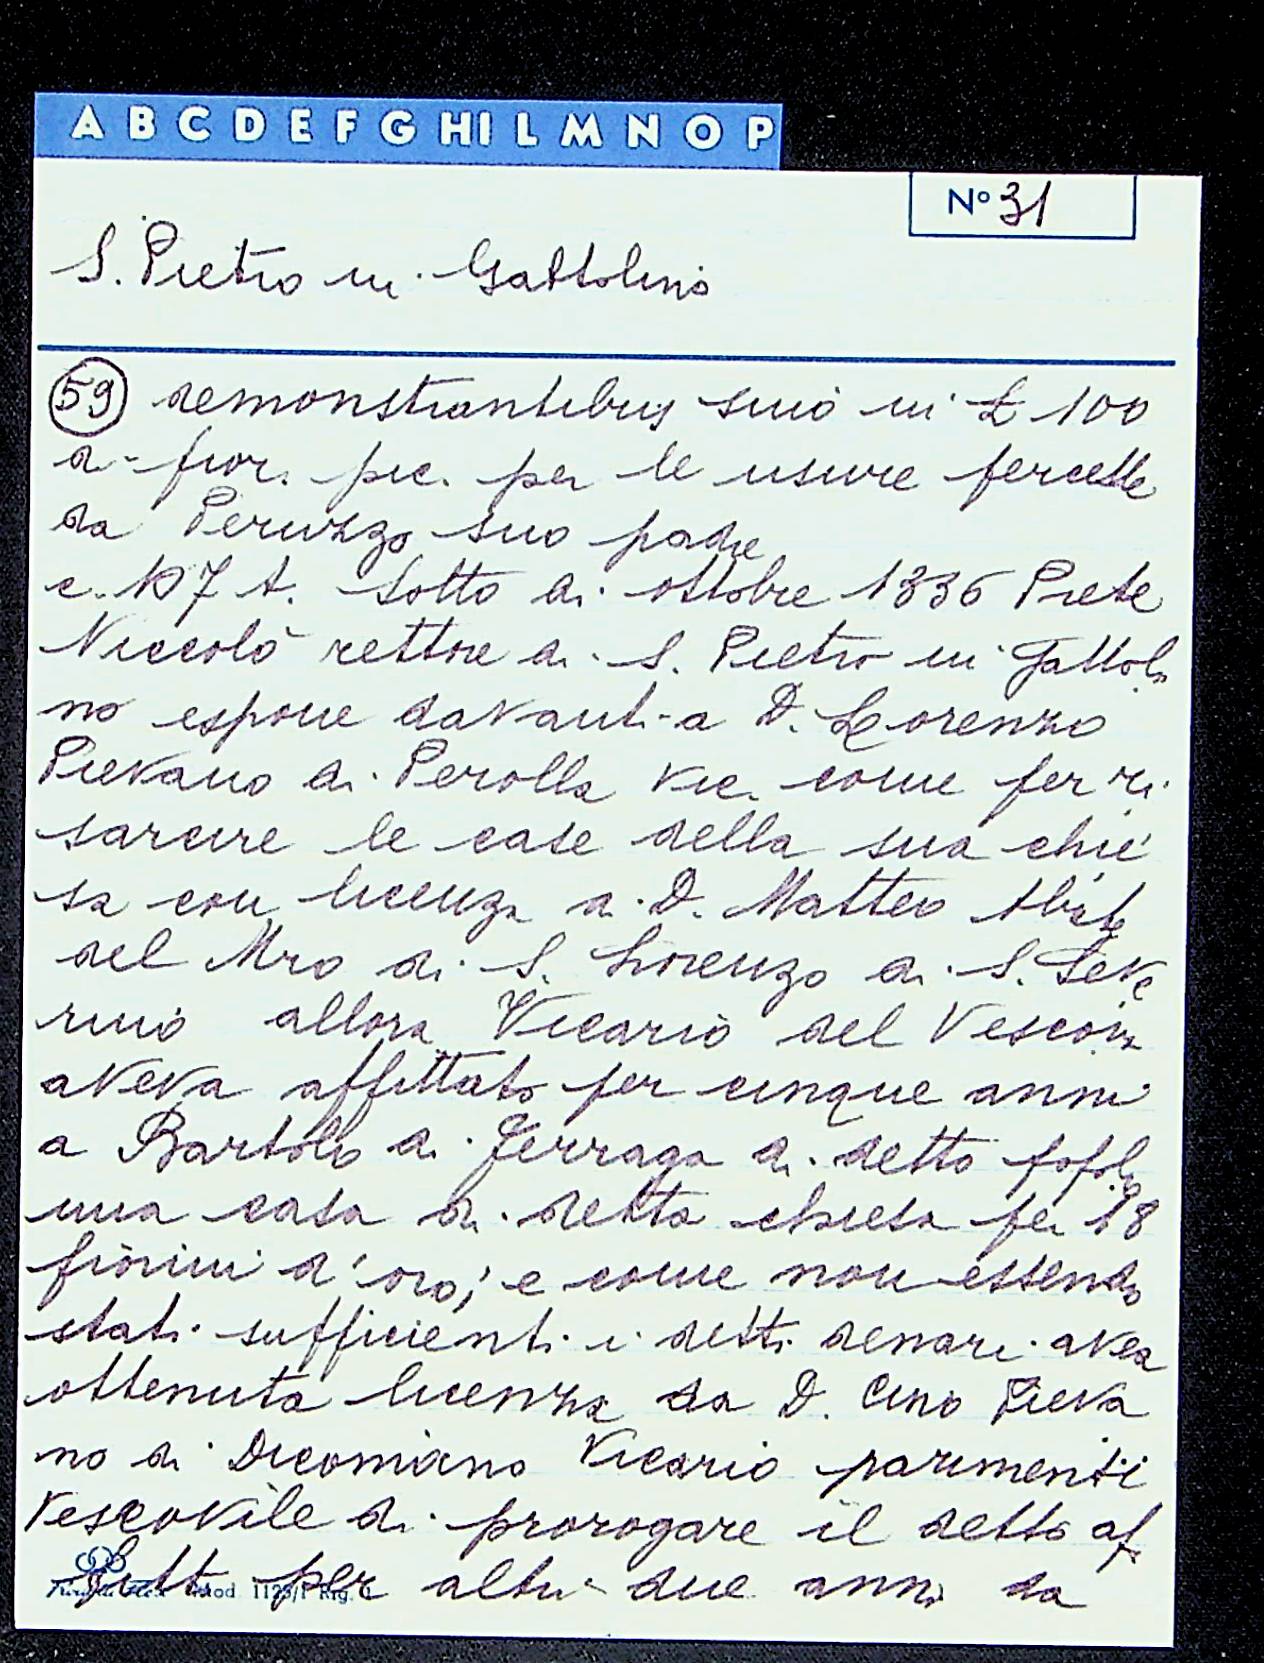 A B C D E F G HI L M N O P
N° 31
S. Pietro in Gattolino
59 demonstrantibus sino in £ 100
di fior. pic. per le usure percette
da Peruzzo suo padre
c. 107 t. Sotto di ottobre 1336 Prete
Niccolò rettore di S. Pietro in Gattoli
no espone davanti a D. Lorenzo
Pievano di Perolla Vic. come per ri
sarcire le case della sua chie
sa con licenza di D. Matteo Abate
del Mro di S. Lorenzo di S. Seve
rino allora Vicario del Vescovo
aveva affittato per cinque anni
a Bartolo di Ferrago di detto popolo
una casa di detta chiesa per 18
fiorini d'oro; e come non essendo
stati sufficienti i detti denari avea
ottenuta licenza da D. Cino Pieva
no di Dicomano Vicario parimenti
Vescovile di prorogare il detto af
fitto per altri due anni da
Mod. 1123/1 Rig.